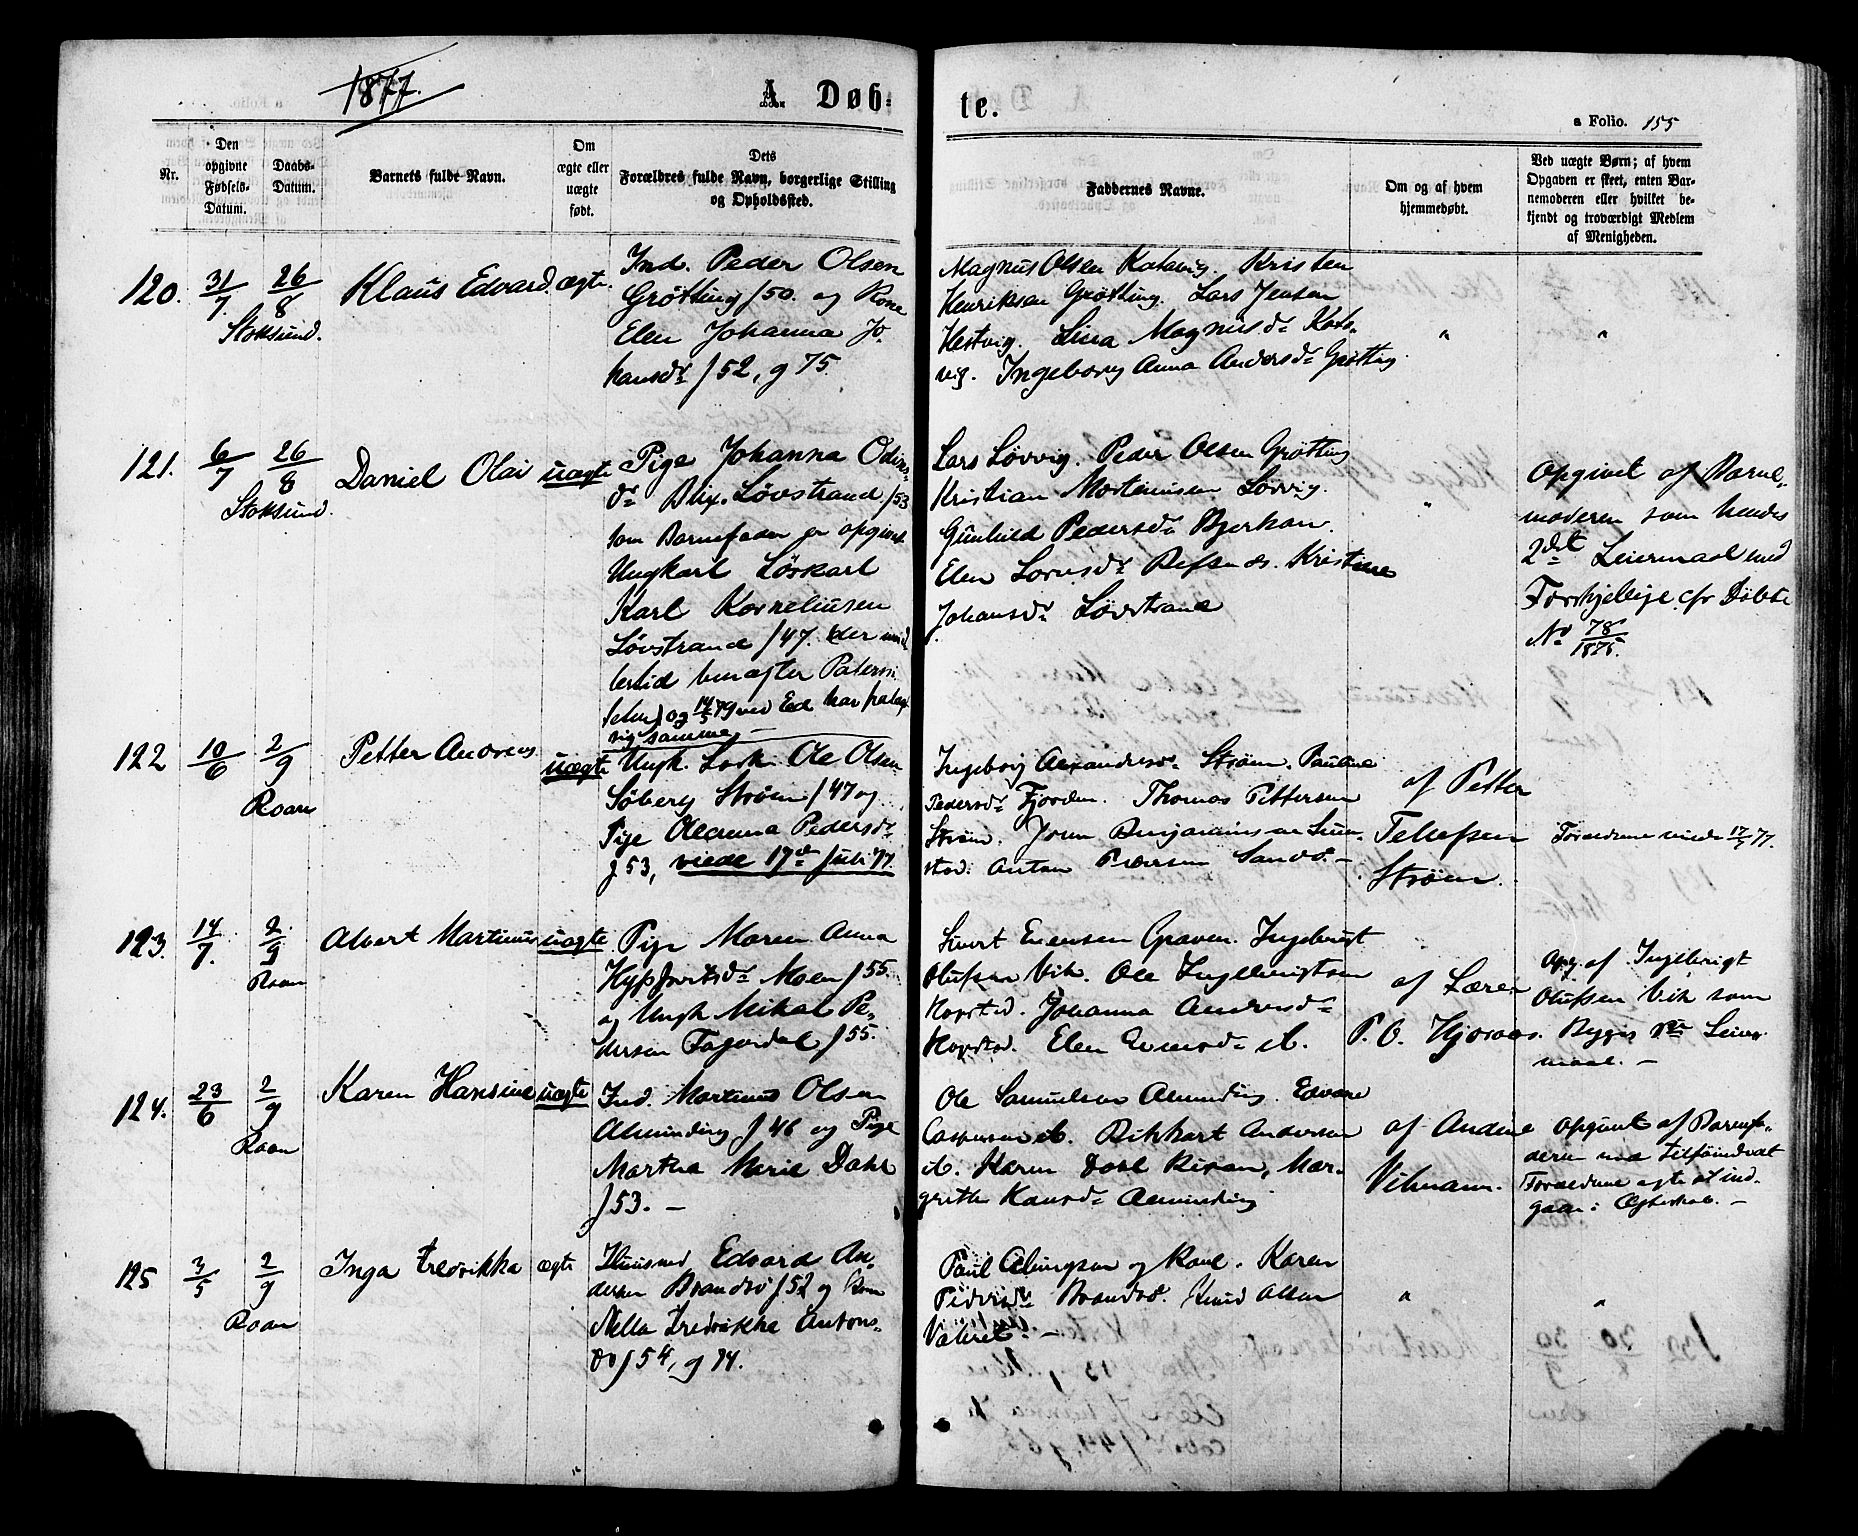 1877.
A. Døb-
te.
a Folio. 155
Nr.
Den
opgivne
Fødsels-
Datum.
Daabs-
Datum.
Barnets fulde Navn.
Om
ægte eller
uægte
født.
Dets
Forældres fulde Navn, borgerlige Stilling
og Opholdssted.
Faddernes Navne.
Om og af hvem
hjemmedøbt.
Ved uægte Børn; af hvem
Opgaven er skeet, enten Bar-
nemoderen eller hvilket be-
kjendt og troværdigt Medlem
af Menigheden.
120.
31/7
26/8
Stoksund.
Klaus Edvard.
ægte.
Ind. Peder Olsen
Grøtting f 50. og Kone
Elen Johanna Jo-
hansdr f 52, g 75.
Magnus Olsen Kotavig. Kristen
Henriksen Grøtting. Lars Jensen
Hestvig. Lina Magnusdr Kota-
vig. Ingeborg Anna Andersdr Grøtting.
"
"
121.
6/7
26/8
Stoksund.
Daniel Olai
uægte
Pige Johanna Odins-
dr Blix. Løvstrand f 53
som Barnefader er opgivet
Ungkarl Løskarl
Karl Korneliusen
Løvstrand f 47. der imid-
lertid benægter Paterni-
teten) og 14/5 79 ved Ed har fralagt
sig samme. —
Lars Løvvig. Peder Olsen Grøtting
Kristian Morteniusen Løvvig.
Gunhild Pedersdr Bjerkan.
Elen Refsnes. Kristine
Johansdr Løvstrand
"
Opgivet af Barne-
moderen som hendes
2det Leiermaal med
Forskjellige cfr Døbte
No 78/1875.
122
10/6
2/9
Roan
Petter Andreas
uægte
Ungk. Losk. Ole Olsen
Søberg Strøm f 47 og
Pige Oleanna Pedersdr
f 53, viede 17de Juli 77.
Ingeborg Strøm. Pauline
Pedersdr Fjorden. Thomas Pettersen
Strøm. Benjaminsen Sum-
stad. Anton Pedersen Sandv. —
af Petter
Tellefsen
Strøm.
Forældrene viede 17/7 77.
123.
14/7.
2/9
Roan
Albert Martinus
uægte
Pige Maren Anna
Moen f 55.
og Ungk Mikal Pe-
dersen Fagerdal f 55.
Sivert Evensen Graven. Ingebrigt
Olufsen Vik. Ole Ingebrigtsen
Hopstad. Johanna Andersdr
Hopstad. Elen ib.
af Lærer
P. O. Hjoraas.
Opg. af Ingebrigt
Olufsen Vik som
Begges 1ste Leier-
maal. —
124.
23/6
2/9
Roan
Karen Hansine
uægte
Ind. Martinus Olsen
Alminding f 46 og Pige
Martha Marie Dahl
f 53. —
Ole Samuelsen Alminding. Edvard
Caspersen ib. Rikhart Andersen
ib. Karen Dahl Mar-
grethe Hansdr Alminding
af Andine
Vilmann.
Opgivet af Barnefa-
deren med Tilføiende at
Forældrene agte at ind-
gaae i Ægteskab. —
125
3/5
2/9
Roan
Inga Fredrikka
ægte
Huusmd Edvard An-
dersen Brandsø f 52 og Kone
Nella Fredrikka Antons-
dr f 54, g 74.
Paul og Kone. Karen
Pedersdr Brandsø. Knud Olsen
—
"
"